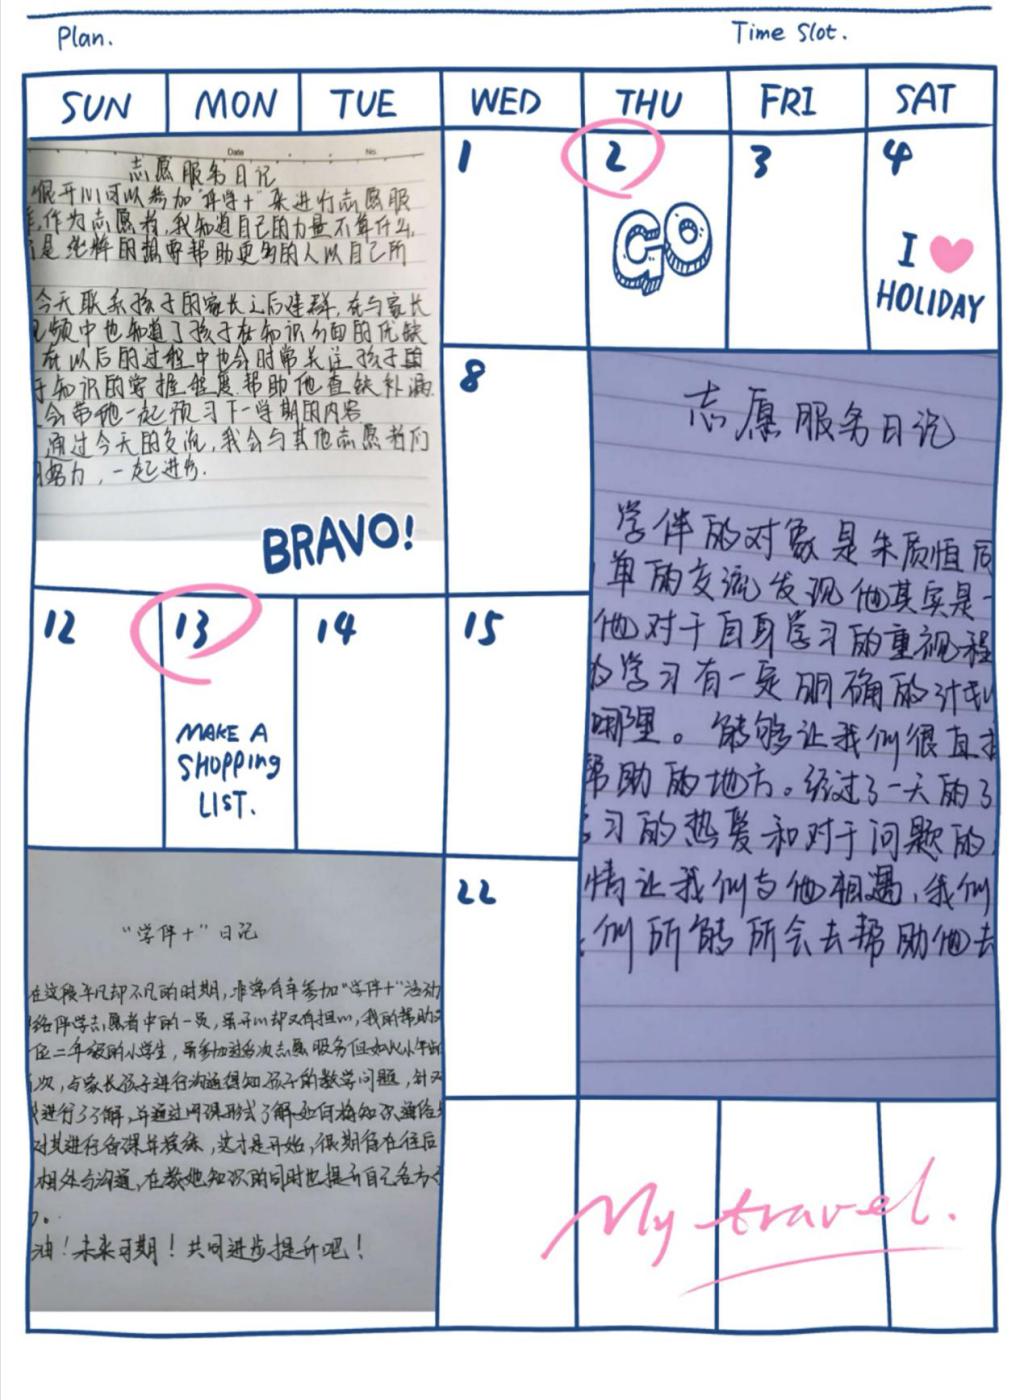 Plan.
Time Slot.
SUN MON TUE WED THU FRI SAT
1 2 3 4
GO
I HOLIDAY
Date No.
志愿服务日记
很开心可以参加"伴学+"来进行志愿服
作为志愿者,我知道自己的力量不算什么,
是 的想要帮助更多的人以自己所
今天联系孩子的家长之后建群,在与家长
视频中也知道了孩子在知识方面的优缺
在以后的过程中也会时常关注孩子
于知识的掌握程度帮助他查缺补漏
会带他一起预习下一学期的内容
通过今天的交流,我会与其他志愿者们
努力,一起进步.
BRAVO!
8
志愿服务日记
学伴的对象是朱质恒同
单的交流发现他其实是一
他对于自身学习的重视程
学习有一定明确的计划
哪里。能够让我们很直接
帮助的地方。经过了一天的了
习的热爱和对于问题的
情让我们与他相遇,我们
们所能所会去帮助他去
12 13 14 15
MAKE A
SHOPPING
LIST.
22
"学伴+"日记
在这段平凡却不凡的时期,非常有幸参加"学伴+"活动
给伴学志愿者中的一员,虽开心却又有担心,我的帮助对
位二年级的小学生,虽参加过多次志愿服务但如此小年龄
次,与家长孩子进行沟通得知孩子的数学问题,针对
进行了了解,并通过网课形式了解如何将知识通俗
对其进行备课并演练,这才是开始,很期待在往后
相处与沟通,在教她知识的同时也提升自己各方
油!未来可期!共同进步提升吧!
My travel.